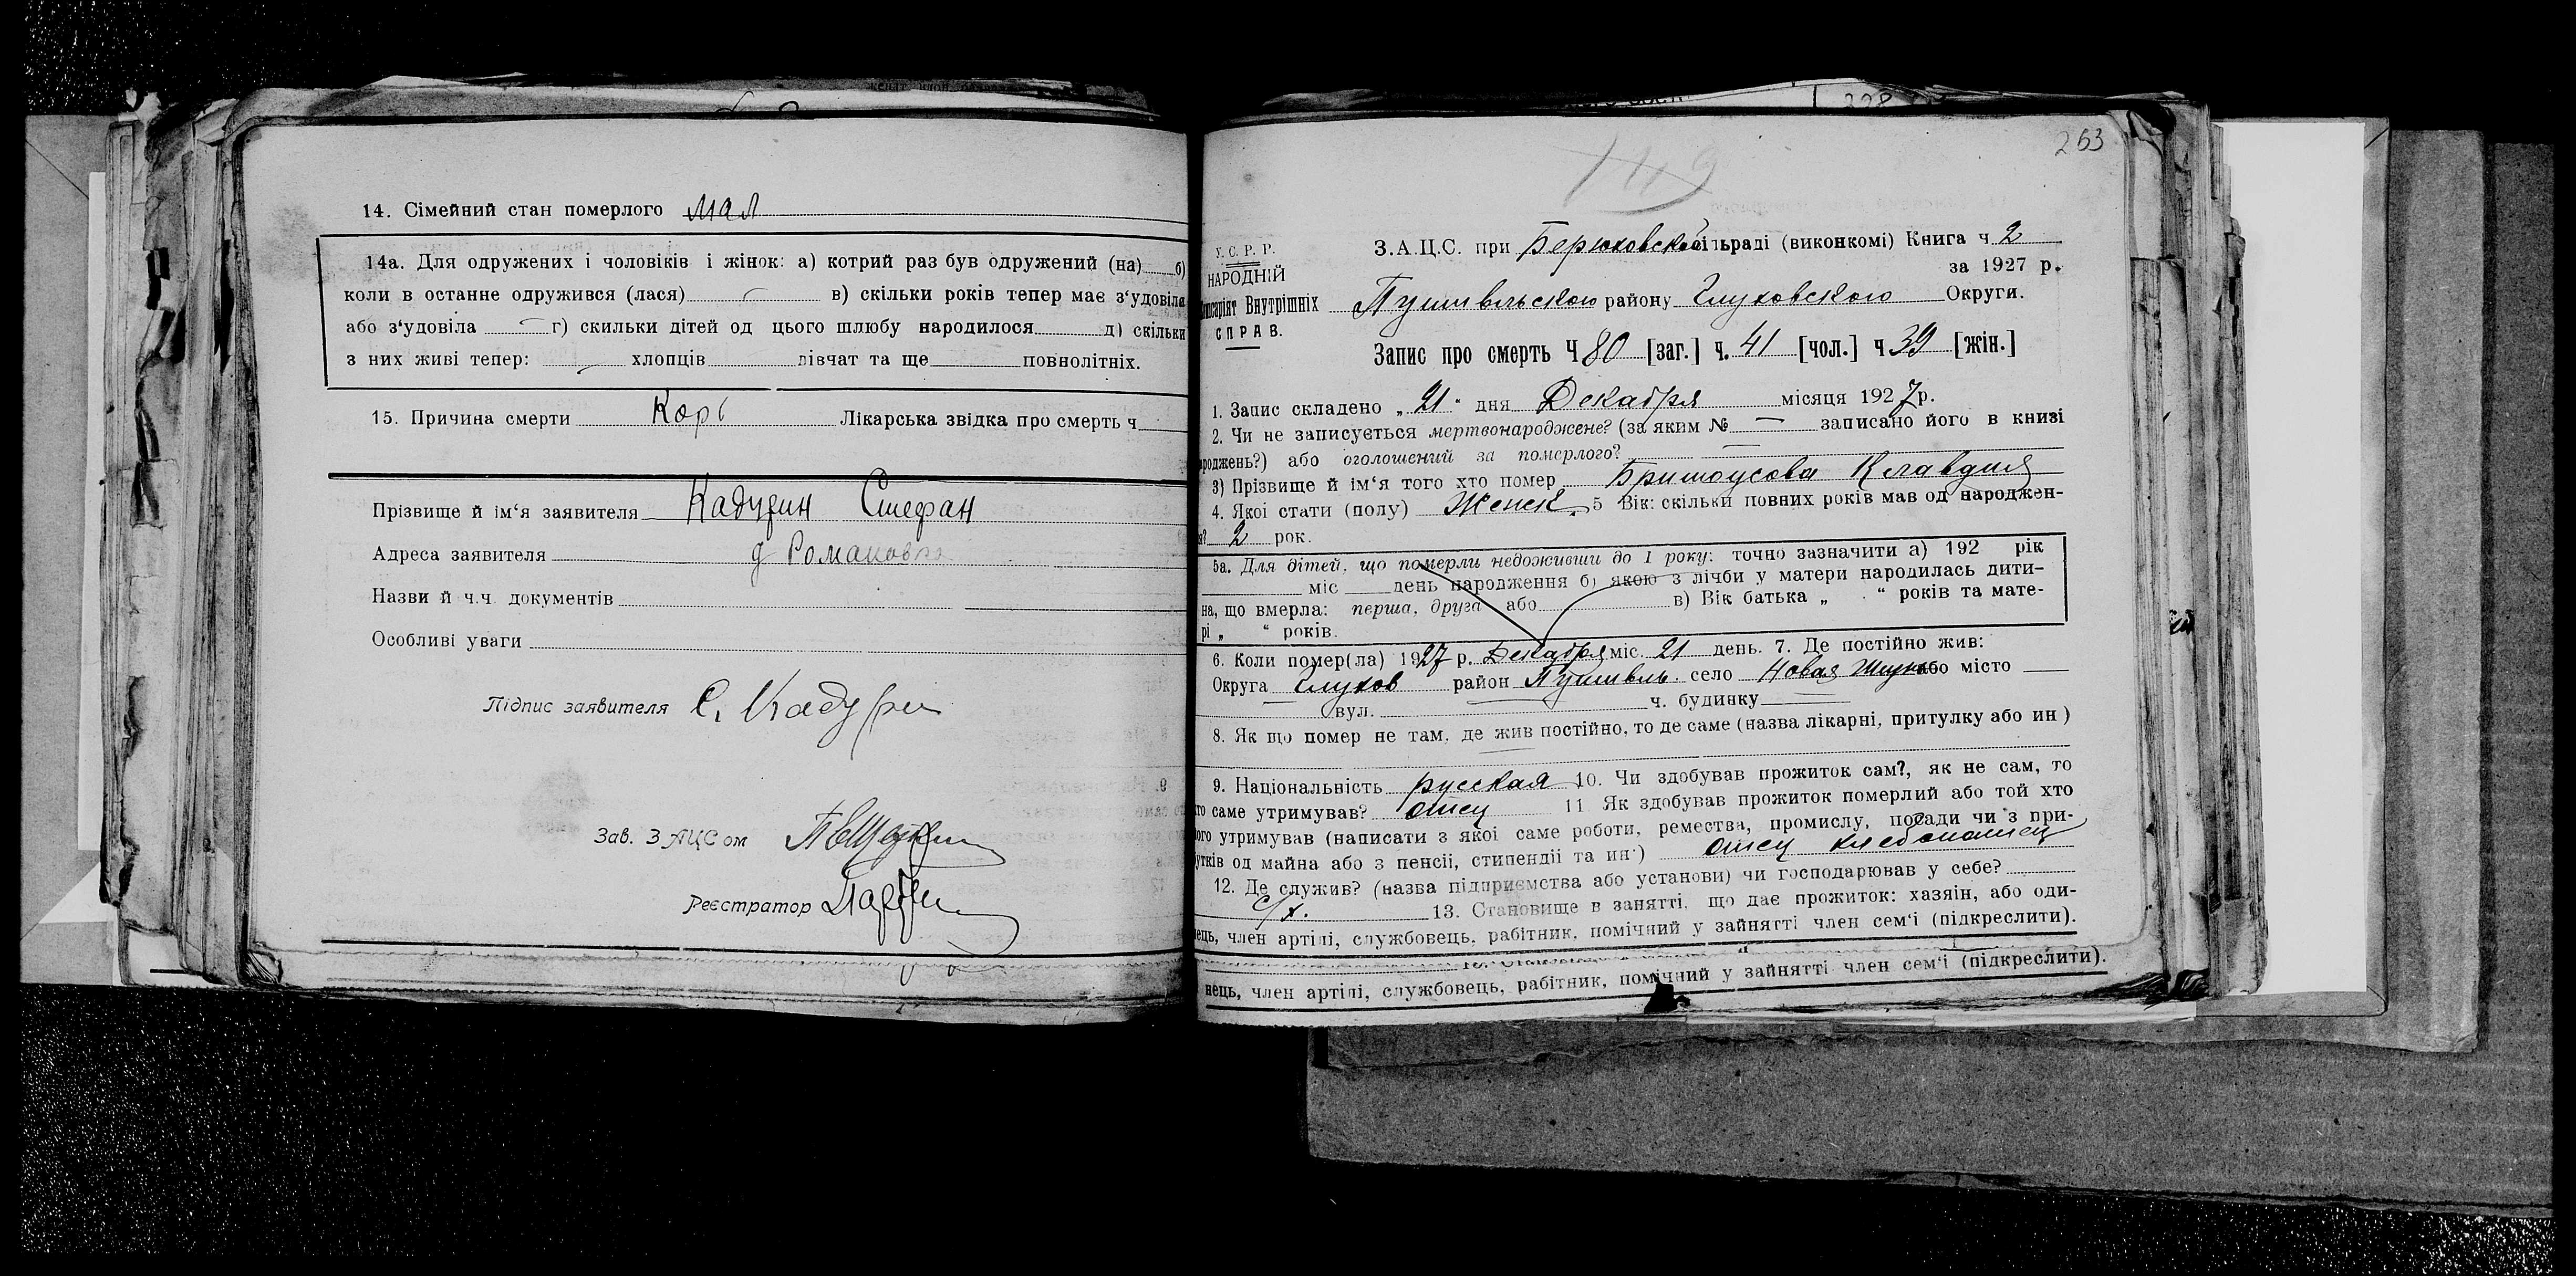 14. Сімейний стан померлого мал
14а. Для одружених і чоловіків і жінок: а) котрий раз був одружений (на) б)
коли в останне одружився (лася) в) скільки років тепер має з‘удовіла
або з‘удовіла г) скильки дітей од цього шлюбу народилося д) скільки
з них живі тепер: хлопців дівчат та ще повнолітніх.
15. Причина смерти Корь Лікарська звідка про смерть ч
Прізвище й ім‘я заявителя Стефан
Адреса заявителя д Романовка
Назви й ч.ч. документів
Особливі уваги
Підпис заявителя С.
Зав. ЗАЦСом
Реєстратор
263
У. С. Р. Р.
НАРОДНІЙ
Комісаріят Внутрішніх
СПРАВ.
З.А.Ц.С. при Берюховской сільраді (виконкомі) Книга ч 2
за 1927 р.
Путивльского району Глуховского Округи.
Запис про смерть Ч 80 [заг.] ч. 41 [чол.] ч 39 [жін.]
1. Запис складено „ 21 “ дня Декабря місяця 1927 р.
2. Чи не записується мертвонароджене? (за яким № — записано його в книзі
роджень?) або оголошений за померлого? —
3) Прізвище й ім‘я того хто помер Клавдия
4. Якої стати (полу) Женск. 5 Вік: скільки повних років мав од народжен-
я? 2 рок.
5а. Для дітей, що померли недоживши до 1 року: точно зазначити а) 192 рік
міс день народження б) якою з лічби у матери народилась дити-
на, що вмерла: перша, друга або в) Вік батька „ “ років та мате-
рі „ “ років.
6. Коли помер(ла) 1927 р. Декабря міс. 21 день. 7. Де постійно жив:
Округа Глухов район Путивль. село Новая або місто —
вул. ч. будинку —
8. Як що помер не там, де жив постійно, то де саме (назва лікарні, притулку або ин)
9. Національність русская 10. Чи здобував прожиток сам?, як не сам, то
то саме утримував? отец 11 Як здобував прожиток померлий або той хто
його утримував (написати з якої саме роботи, ремества, промислу, посади чи з при-
бутків од майна або з пенсії, стипендії та ин·) отец хлебопашец
12. Де служив? (назва підприємства або установи) чи господарював у себе?
с/х. 13. Становище в занятті, що дає прожиток: хазяїн, або оди-
нець, член артілі, службовець, рабітник, помічний у зайнятті член сем‘ї (підкреслити).
нець, член артілі, службовець, рабітник, помічний у зайнятті член сем‘ї (підкреслити).